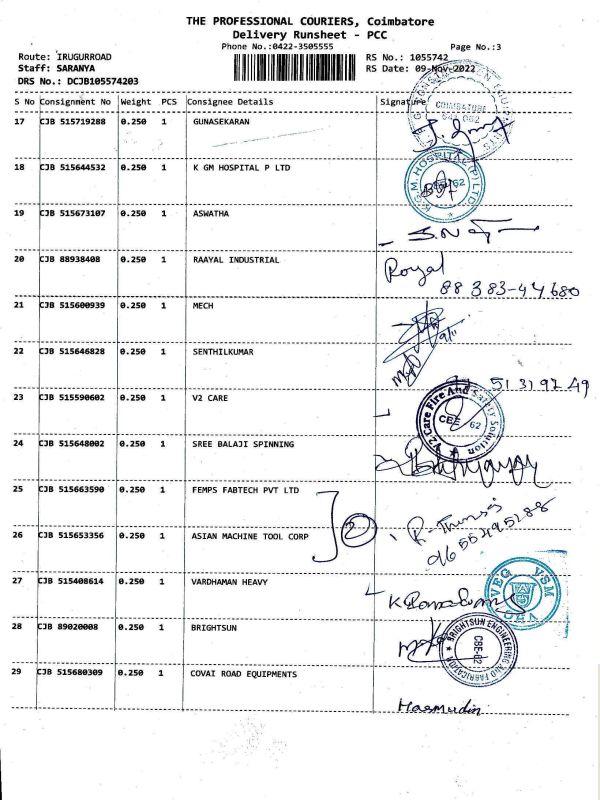 THE PROFESSIONAL COURIERS, Coimbatore
Delivery Runsheet - PCC
Phone No.:0422-3505555 Page No.:3
Route: IRUGURROAD RS No.: 1055742
Staff: SARANYA RS Date: 09-Nov-2022
DRS No.: DCJB105574203
S No Consignment No Weight PCS Consignee Details Signature
17 CJB 515719288 0.250 1 GUNASEKARAN
COIMBATORE
641 062
18 CJB 515644532 0.250 1 K GM HOSPITAL P LTD
K.G.M. HOSPITAL (P) LTD.
62
19 CJB 515673107 0.250 1 ASWATHA
S.N
20 CJB 88938408 0.250 1 RAAYAL INDUSTRIAL
Royal
88 383-47680
21 CJB 515600939 0.250 1 MECH
9/11
22 CJB 515646828 0.250 1 SENTHILKUMAR
51 31 97 49
23 CJB 515590602 0.250 1 V2 CARE
V2 Care Fire And Safety Solution
CBE 62
24 CJB 515648002 0.250 1 SREE BALAJI SPINNING
25 CJB 515663590 0.250 1 FEMPS FABTECH PVT LTD
2
26 CJB 515653356 0.250 1 ASIAN MACHINE TOOL CORP
27 CJB 515408614 0.250 1 VARDHAMAN HEAVY
VEG VSM
28 CJB 89020008 0.250 1 BRIGHTSUN
BRIGHTSUN ENGINEERING AND FABRICATION
CBE-62
29 CJB 515680309 0.250 1 COVAI ROAD EQUIPMENTS
Hasmudin